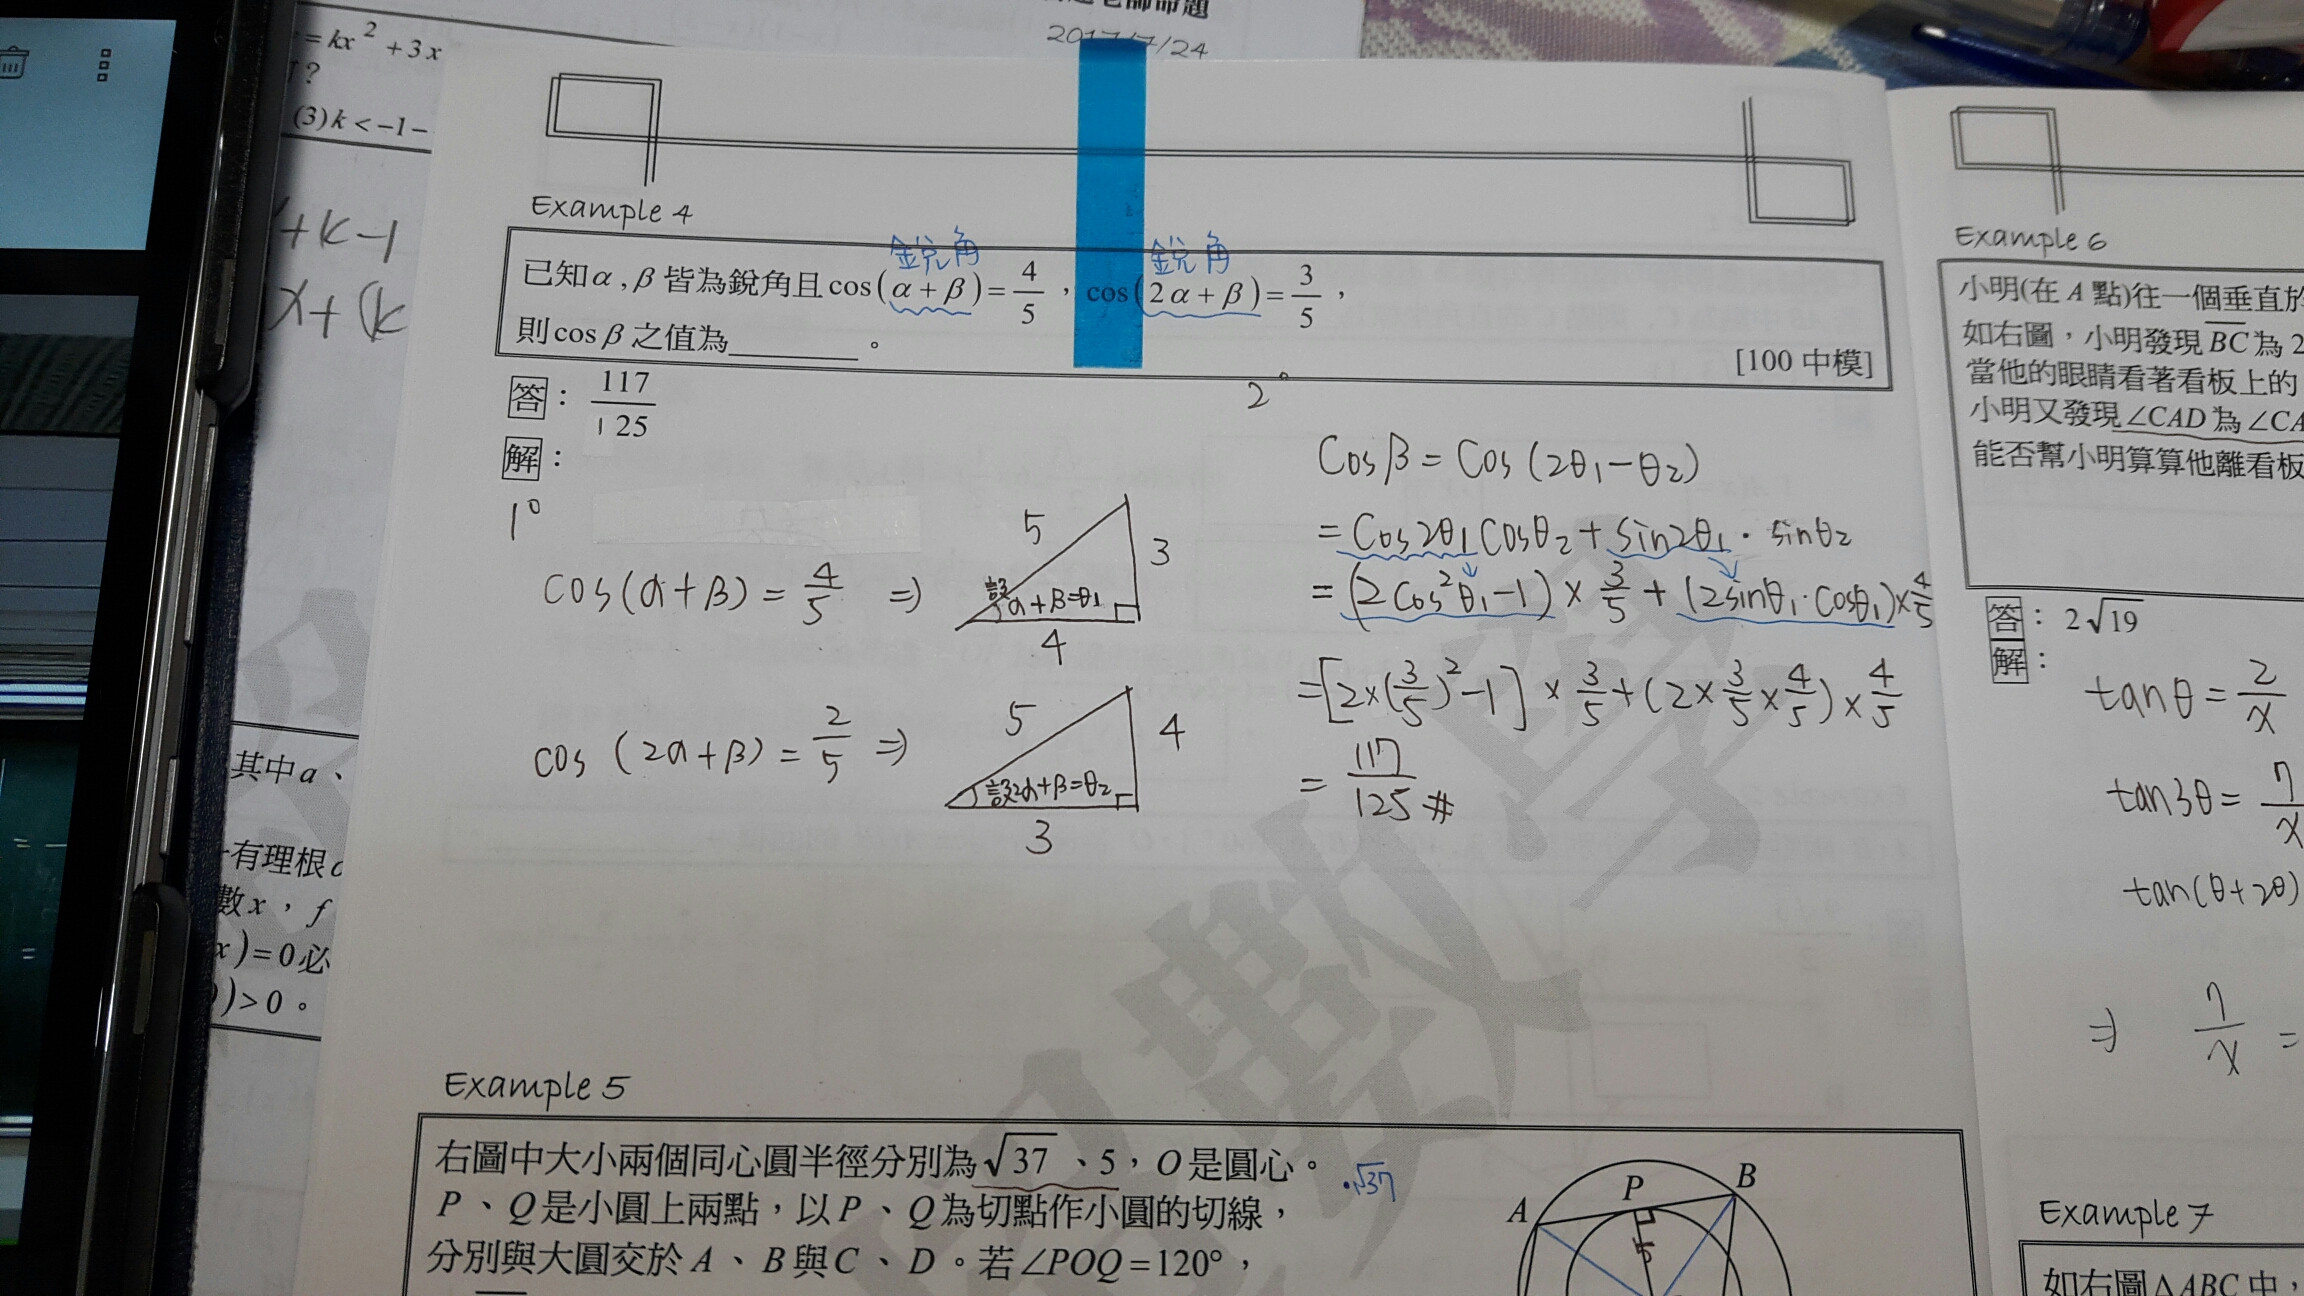 老師命題
2017/7/24
= kx² + 3x
?
(3) k < -1 -
+k-1
x+(k
Example 4
銳角 銳角
已知α,β皆為銳角且cos(α+β)=4/5，cos(2α+β)=3/5，
則cosβ之值為______。
[100 中模]
答：117/125
解：
1°
cos(α+β)=4/5 ⇒
5
3
設α+β=θ₁
4
cos(2α+β)=2/5 ⇒
5
4
設2α+β=θ₂
3
2°
Cosβ=Cos(2θ₁-θ₂)
=Cos2θ₁Cosθ₂+sin2θ₁·sinθ₂
=(2Cos²θ₁-1)×3/5+(2sinθ₁·Cosθ₁)×4/5
=[2×(3/5)²-1]×3/5+(2×3/5×4/5)×4/5
=117/125#
數學
其中a、
有理根c
數x，f
x)=0必
)>0。
Example 5
右圖中大小兩個同心圓半徑分別為√37、5，O是圓心。
·√37
P、Q是小圓上兩點，以P、Q為切點作小圓的切線，
分別與大圓交於A、B與C、D。若∠POQ=120°，
A
P
B
5
Example 6
小明(在A點)往一個垂直於
如右圖，小明發現BC為2
當他的眼睛看著看板上的
小明又發現∠CAD為∠CA
能否幫小明算算他離看板
答：2√19
解：
tanθ=2/x
tan3θ=7/x
tan(θ+2θ)
⇒ 7/x =
Example 7
如右圖△ABC中，